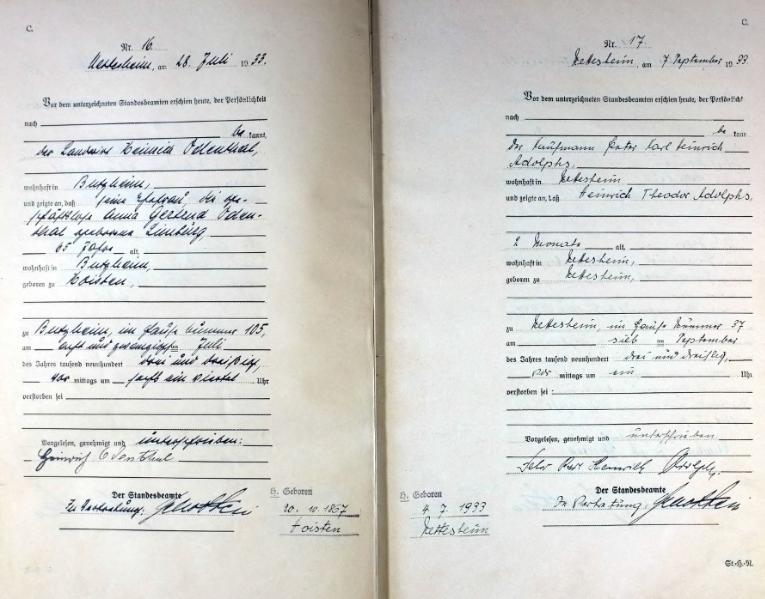 C.
Nr. 16.
Nettesheim, am 28. Juli 1933.
Vor dem unterzeichneten Standesbeamten erschien heute, der Persönlichkeit
nach
be kannt,
der Landwirt Heinrich Odenthal,
wohnhaft in Butzheim,
und zeigte an, daß seine Ehefrau, die ge-
schäftslose Anna Gertrud Oden-
thal geborene Limburg,
65 Jahre alt,
wohnhaft in Butzheim,
geboren zu Hoisten,
zu Butzheim, im Hause Nummer 105,
am acht und zwanzigsten Juli
des Jahres tausend neunhundert drei und dreißig,
vor mittags um Uhr
verstorben sei
Vorgelesen, genehmigt und unterschrieben:
Heinrich Odenthal
Der Standesbeamte
In Vertretung:
H. Geboren
20. 10. 1867
Hoisten
C.
Nr. 17
Nettesheim, am 7 September 1933
Vor dem unterzeichneten Standesbeamten erschien heute, der Persönlichkeit
nach
be kannt
Der Kaufmann Peter Karl Heinrich
Adolphs,
wohnhaft in Nettesheim
und zeigte an, daß Heinrich Theodor Adolphs,
2 Monate alt,
wohnhaft in Nettesheim,
geboren zu Nettesheim,
zu Nettesheim, im Hause Nummer 37
am sieb ten September
des Jahres tausend neunhundert drei und dreißig,
vor mittags um ein Uhr
verstorben sei:
Vorgelesen, genehmigt und unterschrieben
Heinrich Adolphs
Der Standesbeamte
In Vertretung:
H. Geboren
4. 7. 1933
Nettesheim
St.-H.-N.